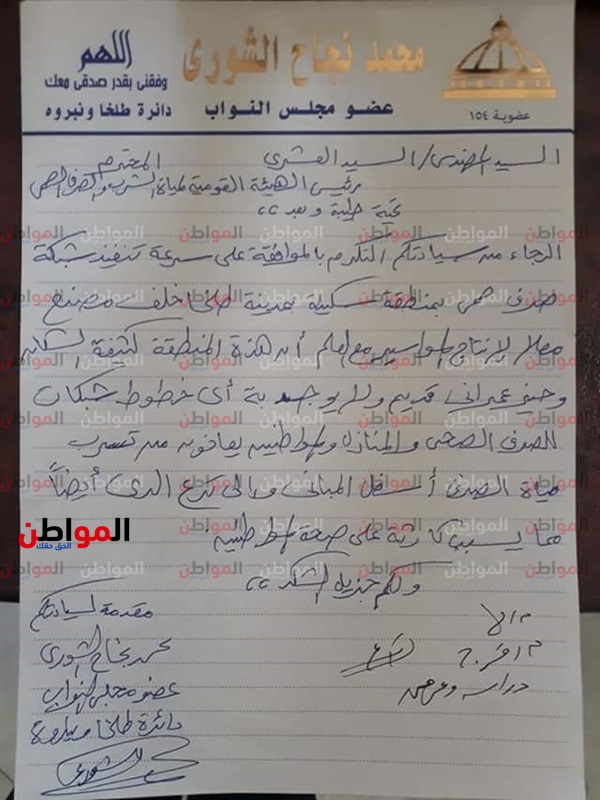 اللهم
وفقنى بقدر صدقى معك
دائرة طلخا ونبروه
محمد نجاح الشورى
عضو مجلس النواب
عضوية ١٥٤
السيد المهندس / السيد العشري المحترم
رئيس الهيئة القومية لمياة الشرب والصرف الصحى
تحية طيبة وبعد ،،
الرجاء من سيادتكم التكرم بالموافقة على سرعة تنفيذ شبكة
صرف صحى بمنطقة سكينة بمدينة طلخا خلف مصنع
لإنتاج المواسير مع العلم أن هذة المنطقة كثيفة السكان
وحيز عمرانى قديم ولا يوجد بة أى خطوط شبكات
للصرف الصحى والمنازل والمواطنين يعانون من تسرب
مياة الصرف أسفل المبانى وإلى ترع الرى أيضاً
مما يسبب كارثة على صحة المواطنين.
ولكم جزيل الشكر ،،
مقدمة لسيادتكم
محمد نجاح الشورى
عضو مجلس النواب
دائرة طلخا ونبروة
الشورى
دراسة وعرض
المواطن
الحق حقك